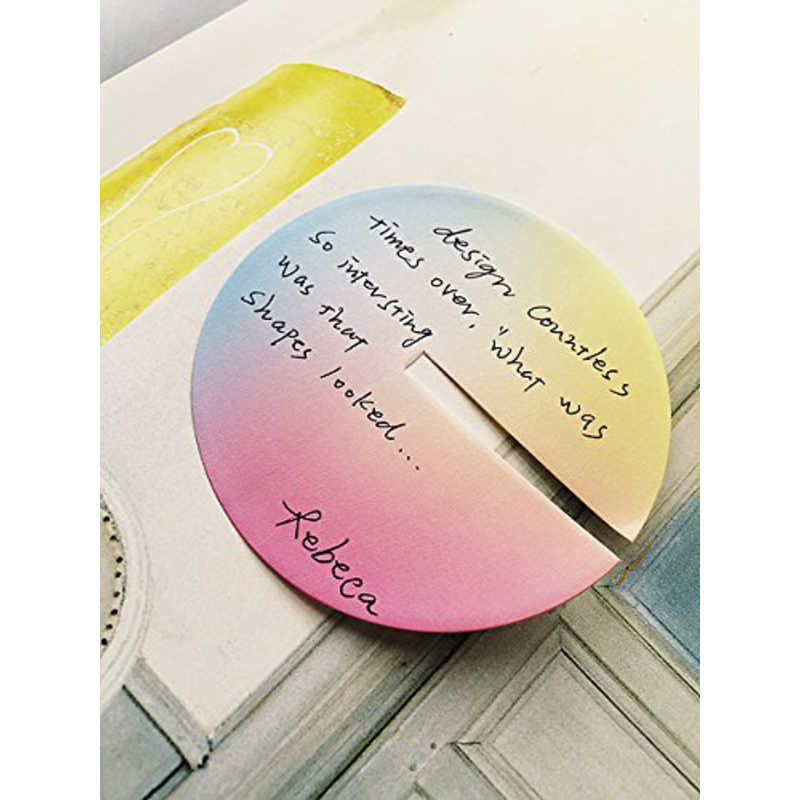 design Countless
times over, "what was
so intersting
was that
shapes looked...
Rebeca